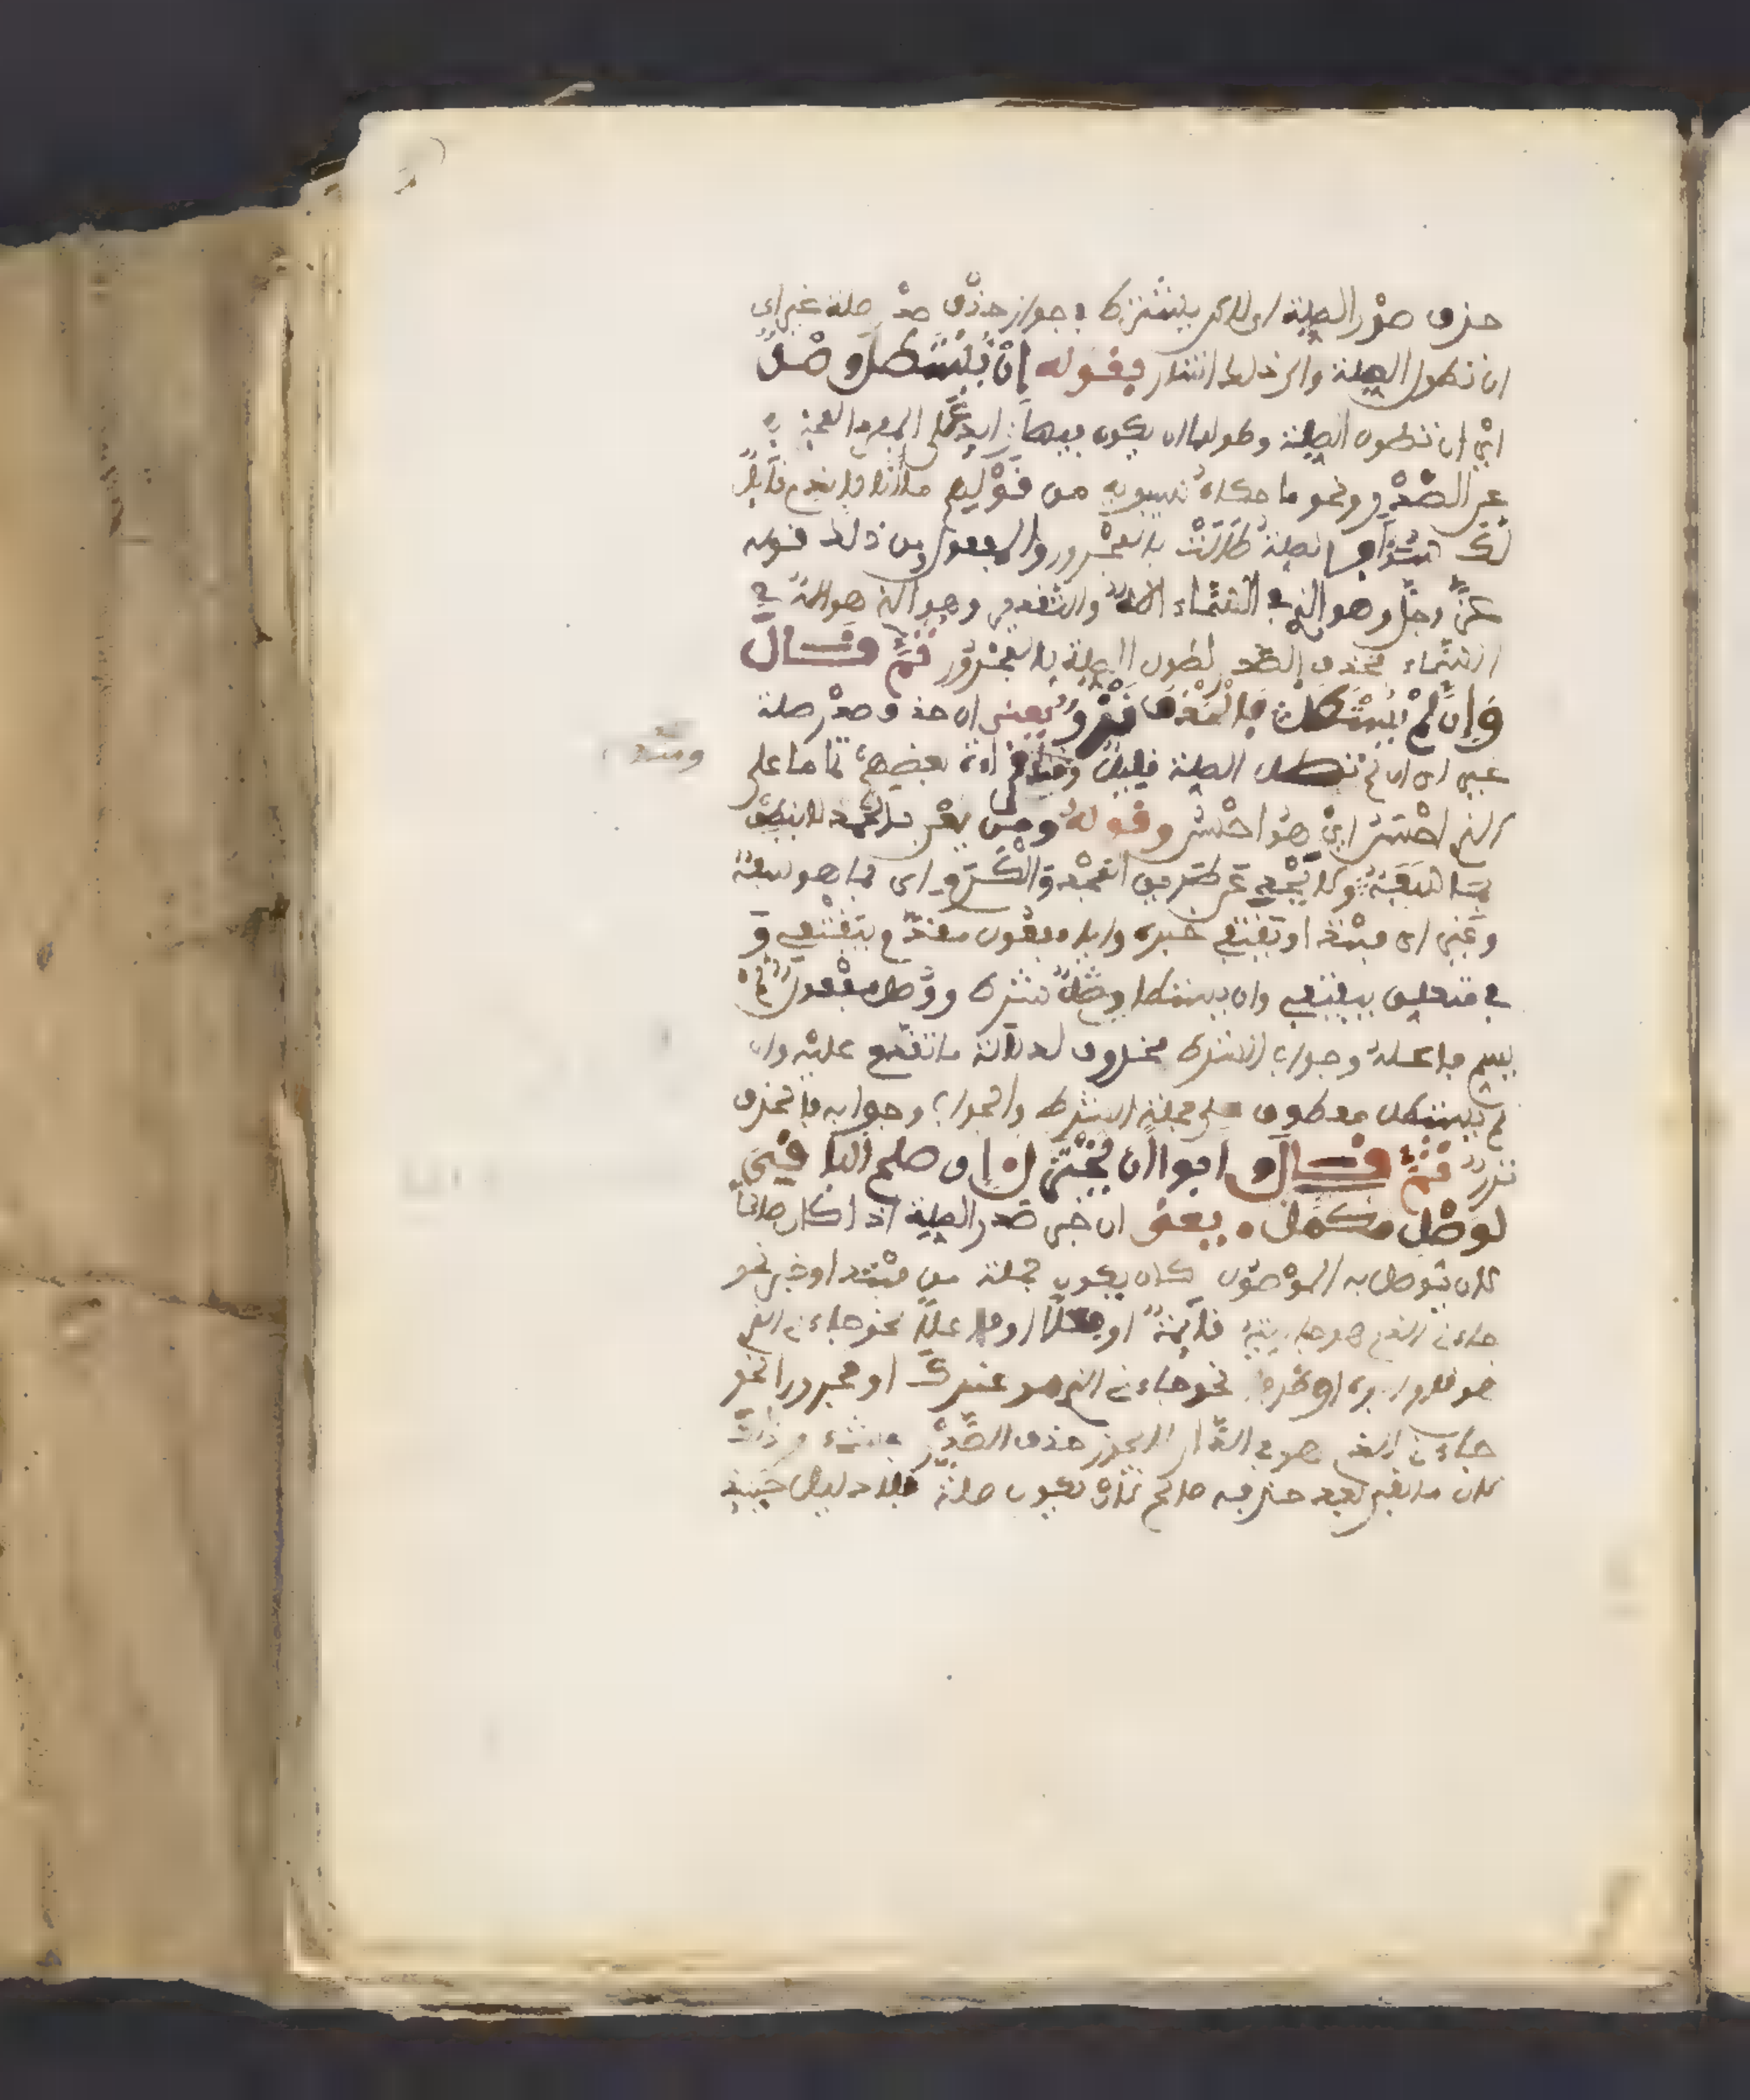 حذف صدر الصلة اي لاكن يشترط في جواز حذف صدر صلة غير اي
ان تطول الصلة والى ذلك اشار بقوله إن يستطل وصل
اي ان تطول الصلة وطولها ان يكون فيها زايد على المبتدا
عن الصدر ونحو ما حكاه سيبويه من قولهم ما انا بالذي قايل
لك شيئا فالصلة طالت بالمجرور والمفعول ومن ذلك قوله
عز وجل وهو الذي في السماء اله والتقدير وهو الذي هو اله في
السماء فحذف الصدر لطول الصلة بالمجرور ثم قال
وإن لم يستطل فالحذف نزر يعني ان حذف صدر صلة
غير اي ان لم تطل الصلة قليل ومنه قراءة بعضهم تماما على
ومنه
الذي احسن اي هو احسن وقوله ومن يعن بالحمد لا ينطق
بما سفه ولا يحد عن سبيل المجد والكرم اي بما هو سفه
وغير اي مبتدا ويقتفي خبره واياه مفعول مقدم بيقتفي و
في متعلق بيقتفي وان يستطل وصل شرط ووصل مفعول لم
يسم فاعله وجواب الشرط محذوف لدلالة ما تقدم عليه وان
لم يستطل معطوف على جملة الشرط والجواب وجوابه فالحذف
نزر ثم قال وابوا ان يختزل إن صلح الباقي
لوصل مكمل يعني ان خبر صدر الصلة اذا كان صالحا
لان يوصل به الموصول كان يكون جملة من مبتدا وخبر نحو
جاءني الذي هو جاريته قايمة او فعلا او فاعلا نحو جاءني الذي
هو قام ابوه او ظرفا نحو جاءني الذي هو عندك او مجرورا نحو
جاءني الذي هو في الدار لا يجوز حذف الصدر في شيء من ذلك
لان ما بقي بعد حذفه صالح لان يكون صلة فلا دليل حينئذ